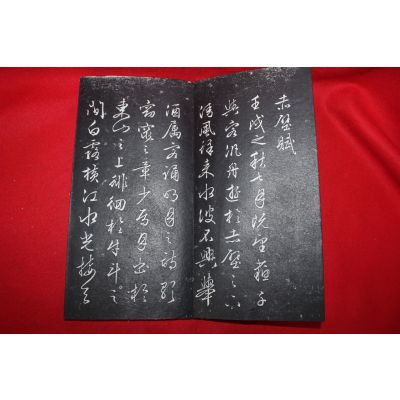 赤壁賦
壬戌之秋七月既望蘇子
與客汎舟遊於赤壁之下
清風徐來水波不興舉
酒属客誦明月之詩歌
窈窕之章少焉月出於
東山之上徘徊於牛斗之
間白露橫江水光接天